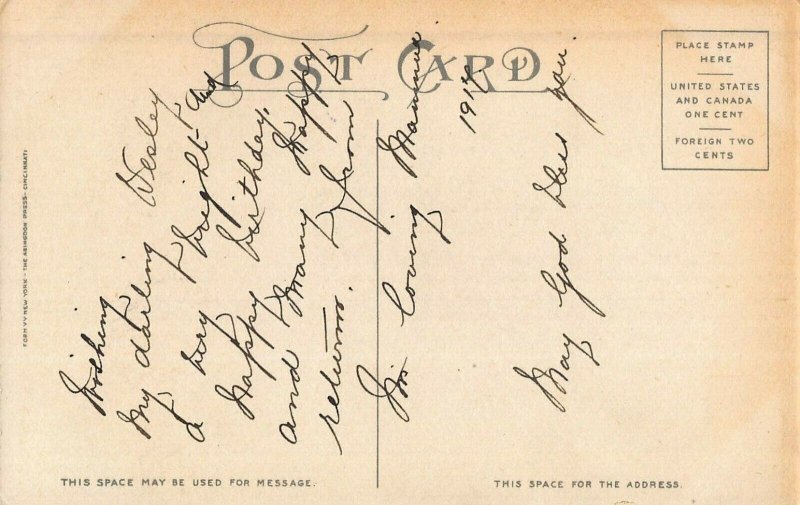 POST CARD
PLACE STAMP
HERE
UNITED STATES
AND CANADA
ONE CENT
FOREIGN TWO
CENTS
Wishing
My darling Wesley
a very bright and
Happy birthday,
and Many Happy
returns. from
his loving Mamma.
1914
May God bless you.
THIS SPACE MAY BE USED FOR MESSAGE.
THIS SPACE FOR THE ADDRESS.
FORM VV NEW YORK - THE ABINGDON PRESS - CINCINNATI